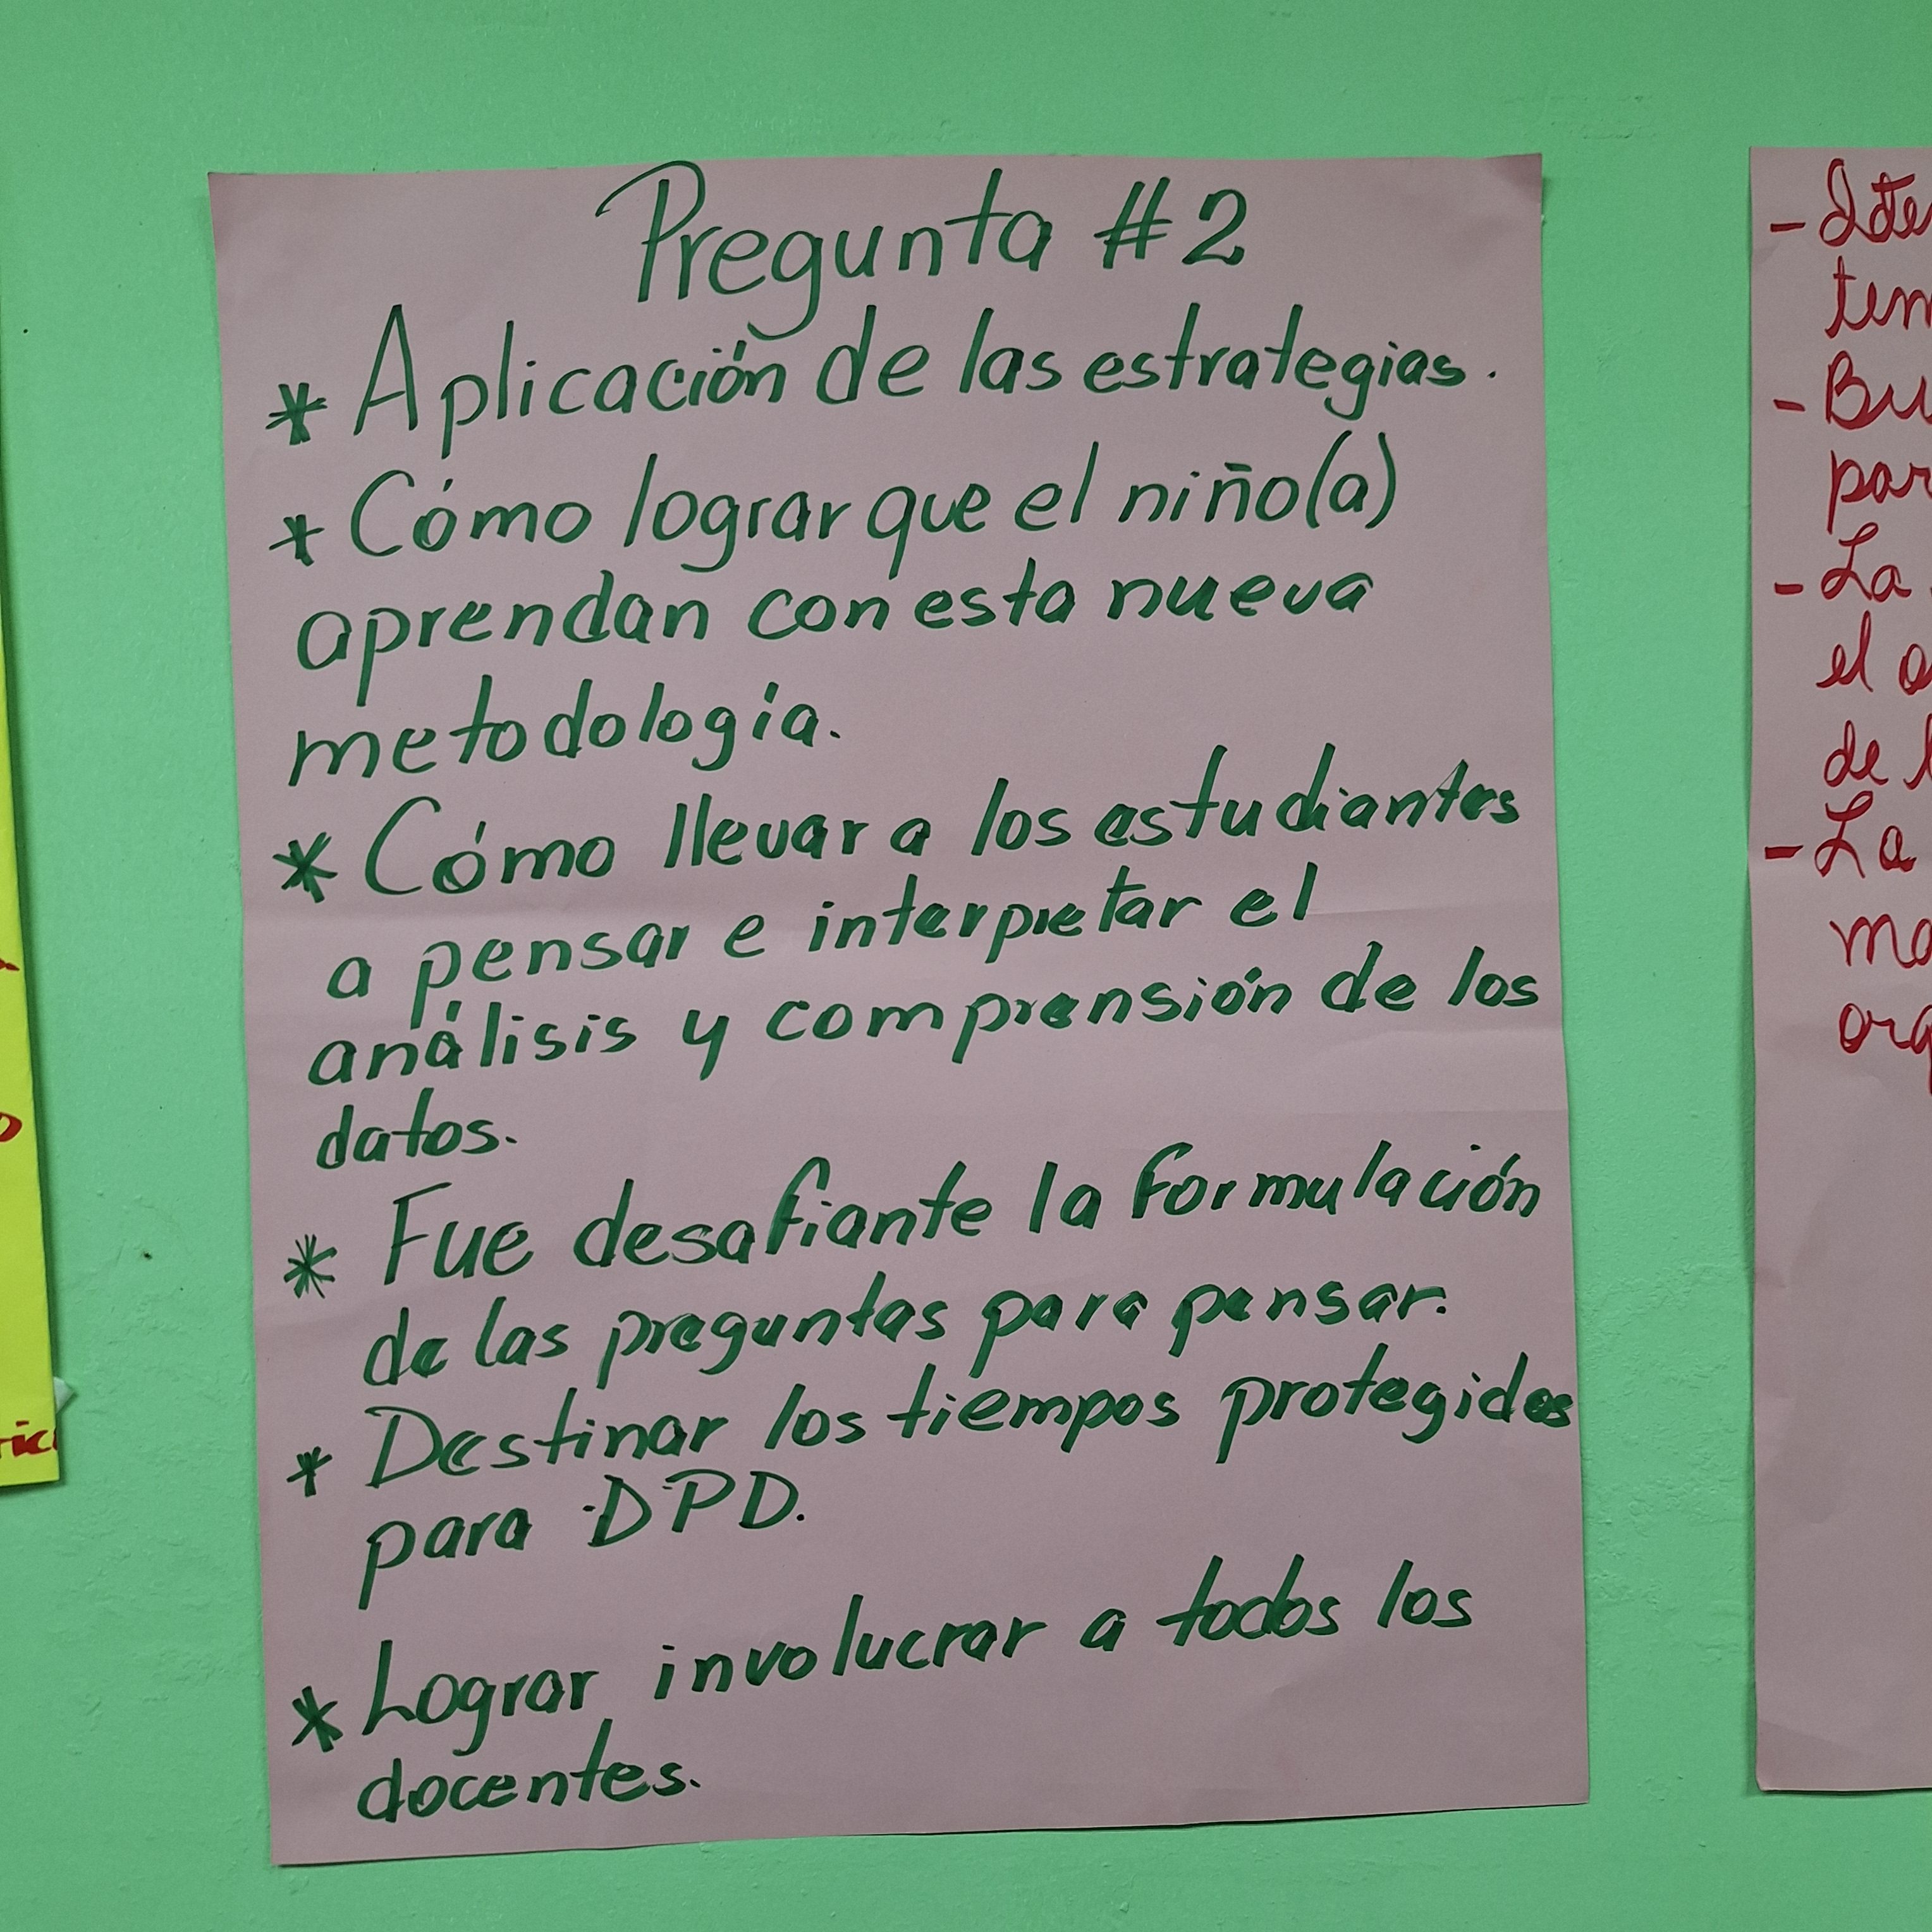 Pregunta #2
* Aplicación de las estrategias.
* Cómo lograr que el niño(a)
aprendan con esta nueva
metodología.
* Cómo llevar a los estudiantes
a pensar e interpretar el
análisis y comprensión de los
datos.
* Fue desafiante la formulación
de las preguntas para pensar.
* Destinar los tiempos protegidos
para DPD.
* Lograr involucrar a todos los
docentes.
- 
- Bu
par
- La
el
de
- La
ma
org